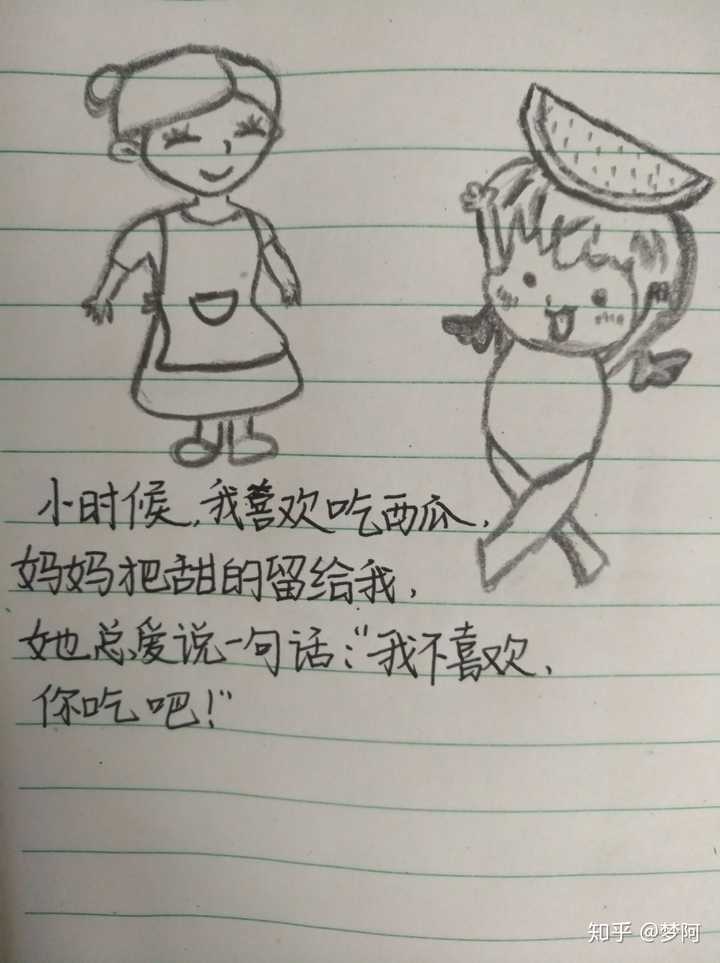 小时候，我喜欢吃西瓜，
妈妈把甜的留给我，
她总爱说一句话：“我不喜欢，
你吃吧！”
知乎 @梦阿